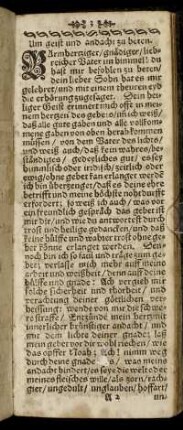 Um geist und andacht zu beten.
Barmhertziger, gnädiger, lieb-
reicher Vater im himmel! du
hast mir befohlen zu beten/
dein lieber Sohn hat es mir
gelehret/ und mit einem theuren eyd
die erhörung zugesaget. Dein hei-
liger Geist erinnert mich offt in meinem
hertzen des gebets: ich weiß/
daß alle gute gaben und alle vollkom-
mene gaben von oben herab kommen
müssen/ von dem Vater des lichts/
und weiß auch/ daß kein wahres/ be-
ständiges/ gedeyliches gut/ es sey
himmlisch oder irdisch/ zeitlich oder
ewig/ ohne gebet kan erlanget werden
ich bin überzeuget/ daß es deine ehre
betrifft und meine höchste nothdurfft
erfordert: so weiß ich auch/ was vor
ein freundlich gespräch das gebet ist
mit dir/ und wie du antwortest durch
trost und heilige gedancken/ und daß
keine hülffe und wahrer trost ohne ge-
bet könne erlanget werden. Den-
noch bin ich so faul und träge zum ge-
bet; verlasse mich mehr auff meine
arbeit und weißheit/ denn auff deine
hülffe und gnade: Ach vergieb mir
solche sicherheit und thorheit/ und
verachtung deiner göttlichen ver-
heissung: wende von mir die schwe-
re straffe/
innerlicher brünstiger andacht/ und
mit dem liebe deiner gnade: laß
mein gebet vor dir wohl riechen/ wie
das opffer Noah: Ach! nimm weg
durch deine gnade was meine
andacht hindert/ es sey die welt oder
meines fleisches wille/ als zorn/ rach-
gier/ ungedult/ unglauben/ hoffart/
A 2 un-